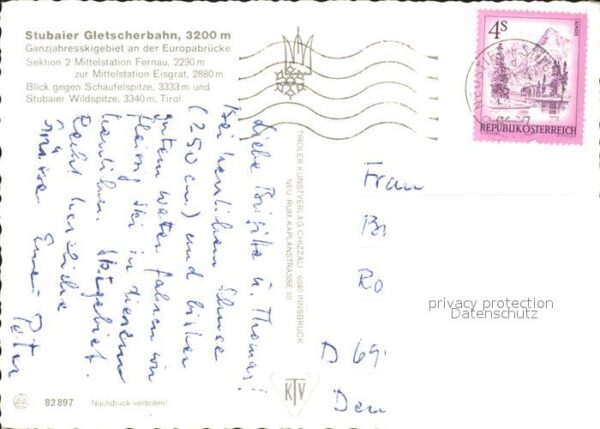 Stubaier Gletscherbahn, 3200 m
Ganzjahresskigebiet an der Europabrücke
Sektion 2 Mittelstation Fernau, 2290 m
zur Mittelstation Eisgrat, 2880 m
Blick gegen Schaufelspitze, 3333 m und
Stubaier Wildspitze, 3340 m, Tirol
4S
REPUBLIK ÖSTERREICH
Liebe Brigitte u. Thomas!
Bei herrlichem Schnee
(250 cm) und bisher
gutem Wetter fahren wir
fleissig Ski in diesem
herrlichen Skigebiet.
Recht herzliche
Grüsse
TIROLER KUNSTVERLAG CHIZZALI 6040 INNSBRUCK
NEU RUM KAPLANSTRASSE 10
Frau
B
Ro
D 69
privacy protection
Datenschutz
KTV
82 897 Nachdruck verboten!